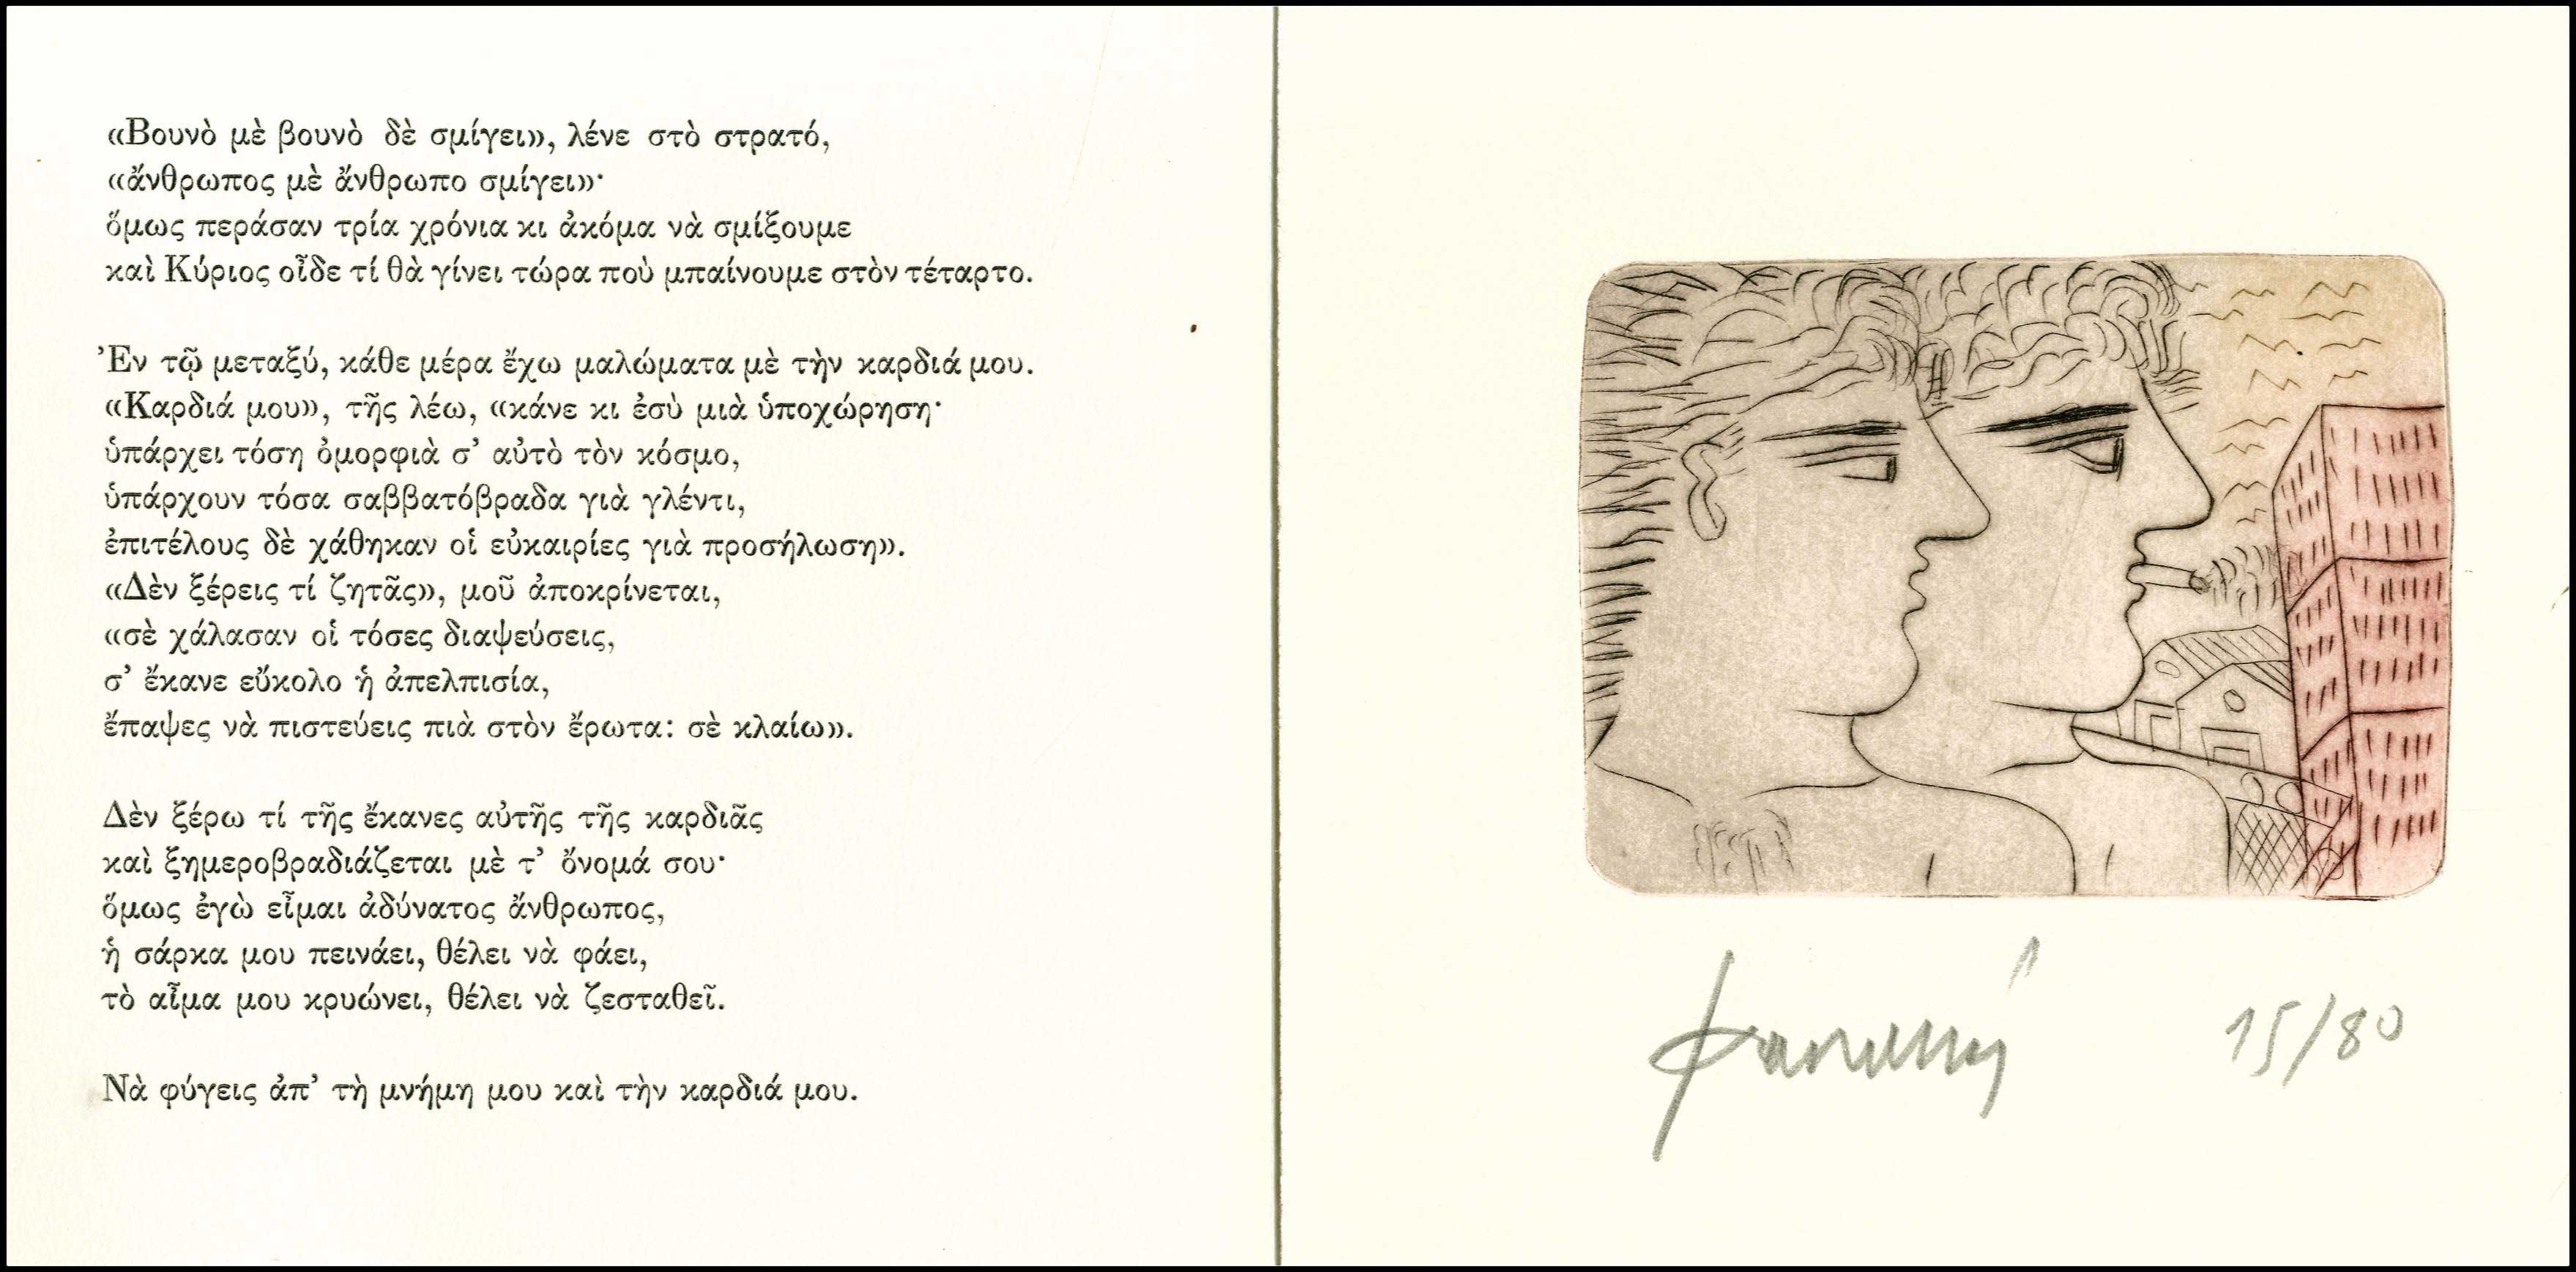 «Βουνὸ μὲ βουνὸ δὲ σμίγει», λένε στὸ στρατό,
«ἄνθρωπος μὲ ἄνθρωπο σμίγει»·
ὅμως περάσαν τρία χρόνια κι ἀκόμα νὰ σμίξουμε
καὶ Κύριος οἶδε τί θὰ γίνει τώρα ποὺ μπαίνουμε στὸν τέταρτο.
Ἐν τῷ μεταξύ, κάθε μέρα ἔχω μαλώματα μὲ τὴν καρδιά μου.
«Καρδιά μου», τῆς λέω, «κάνε κι ἐσὺ μιὰ ὑποχώρηση·
ὑπάρχει τόση ὀμορφιὰ σ’ αὐτὸ τὸν κόσμο,
ὑπάρχουν τόσα σαββατόβραδα γιὰ γλέντι,
ἐπιτέλους δὲ χάθηκαν οἱ εὐκαιρίες γιὰ προσήλωση».
«Δὲν ξέρεις τί ζητᾶς», μοῦ ἀποκρίνεται,
«σὲ χάλασαν οἱ τόσες διαψεύσεις,
σ’ ἔκανε εὔκολο ἡ ἀπελπισία,
ἔπαψες νὰ πιστεύεις πιὰ στὸν ἔρωτα: σὲ κλαίω».
Δὲν ξέρω τί τῆς ἔκανες αὐτῆς τῆς καρδιᾶς
καὶ ξημεροβραδιάζεται μὲ τ’ ὄνομά σου·
ὅμως ἐγὼ εἶμαι ἀδύνατος ἄνθρωπος,
ἡ σάρκα μου πεινάει, θέλει νὰ φάει,
τὸ αἷμα μου κρυώνει, θέλει νὰ ζεσταθεῖ.
Νὰ φύγεις ἀπ’ τὴ μνήμη μου καὶ τὴν καρδιά μου.
15/80